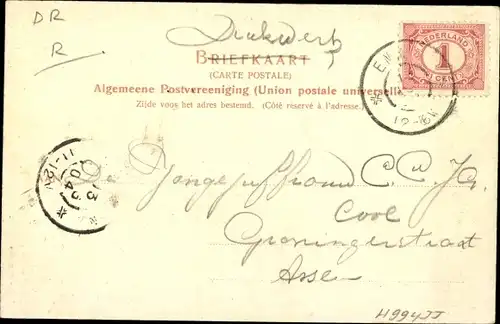 DR
R
Drukwerk
BRIEFKAART
(CARTE POSTALE)
Algemeene Postvereeniging (Union postale universelle)
Zijde voor het adres bestemd. (Côté réservé à l'adresse.)
NEDERLAND
1
CENT
De Jongejuffrouw C. C. Js.
Cool
Groningerstraat
Assen
H994JJ